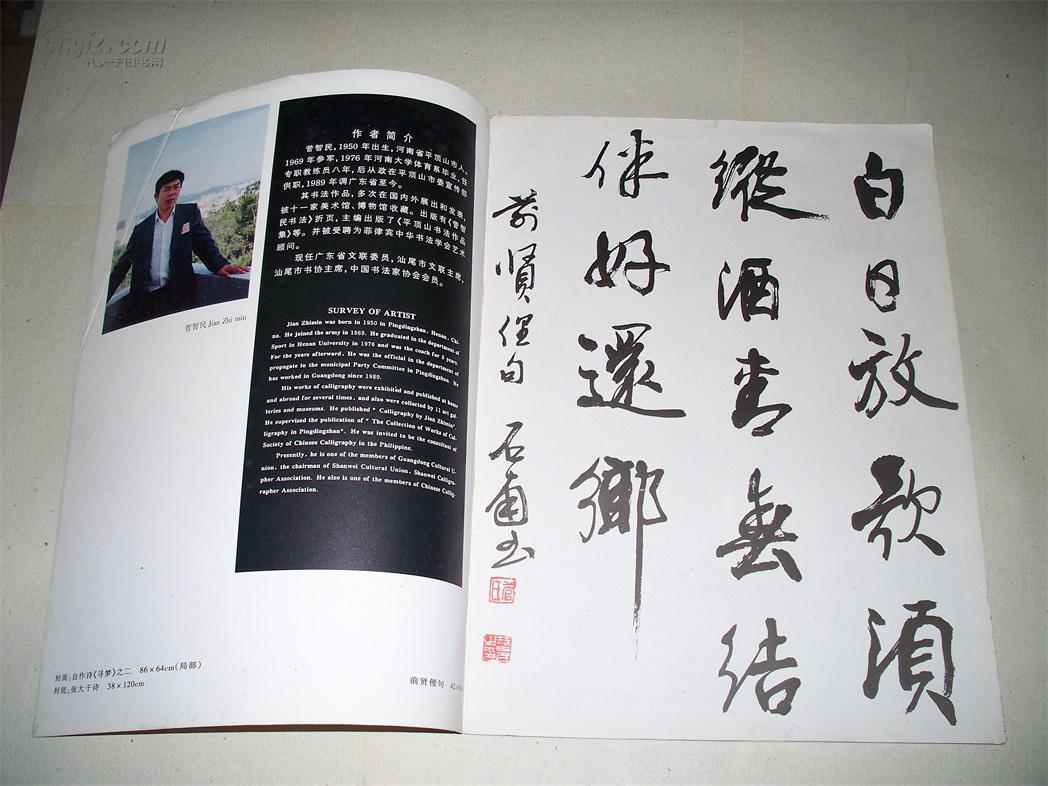 作者简介
菅智民，1950年出生，河南省平顶山市人。
1969年参军，1976年河南大学体育系毕业，任
专职教练员八年，后从政在平顶山市委宣传部
供职，1989年调广东省至今。
其书法作品，多次在国内外展出和发表，
被十一家美术馆、博物馆收藏。出版有《菅智
民书法》折页，主编出版了《平顶山书法作品
集》等。并被受聘为菲律宾中华书法学会艺术
顾问。
现任广东省文联委员，汕尾市文联主席，
汕尾市书协主席，中国书法家协会会员。
SURVEY OF ARTIST
Jian Zhimin was born in 1950 in Pingdingshan, Henan, Chi-
na. He joined the army in 1969. He graduated in the department of
Sport in Henan Univerizity in 1976 and was the coach for 8 years.
For the years afterward, He was the official in the department of
propagate in the municipal Party Committee in Pingdingshan. He
has worked in Guangdong since 1989.
His works of calligraphy were exhibited and published at home
and abroad for several times, and also were collected by 11 art gal-
leries and museums. He published " Calligraphy by Jian Zhimin"
He supervised the publication of " The Collection of Works of Cal-
ligraphy in Pingdingshan". He was invited to be the consultant of
Society of Chinese Calligraphy in the Philippine.
Presently, he is one of the members of Guangdong Cultural U-
nion, the chairman of Shanwei Cultural Union, Shanwei Calligra-
pher Association. He also is one of the members of Chinese Callig-
rapher Association.
菅智民 Jian Zhi min
封面：自作诗《寻梦》之二 86×64cm(局部)
封底：张大千诗 38×120cm
前贤俚句 42
白日放歌須
縱酒青春結
伴好還鄉
前賢俚句 石甫书